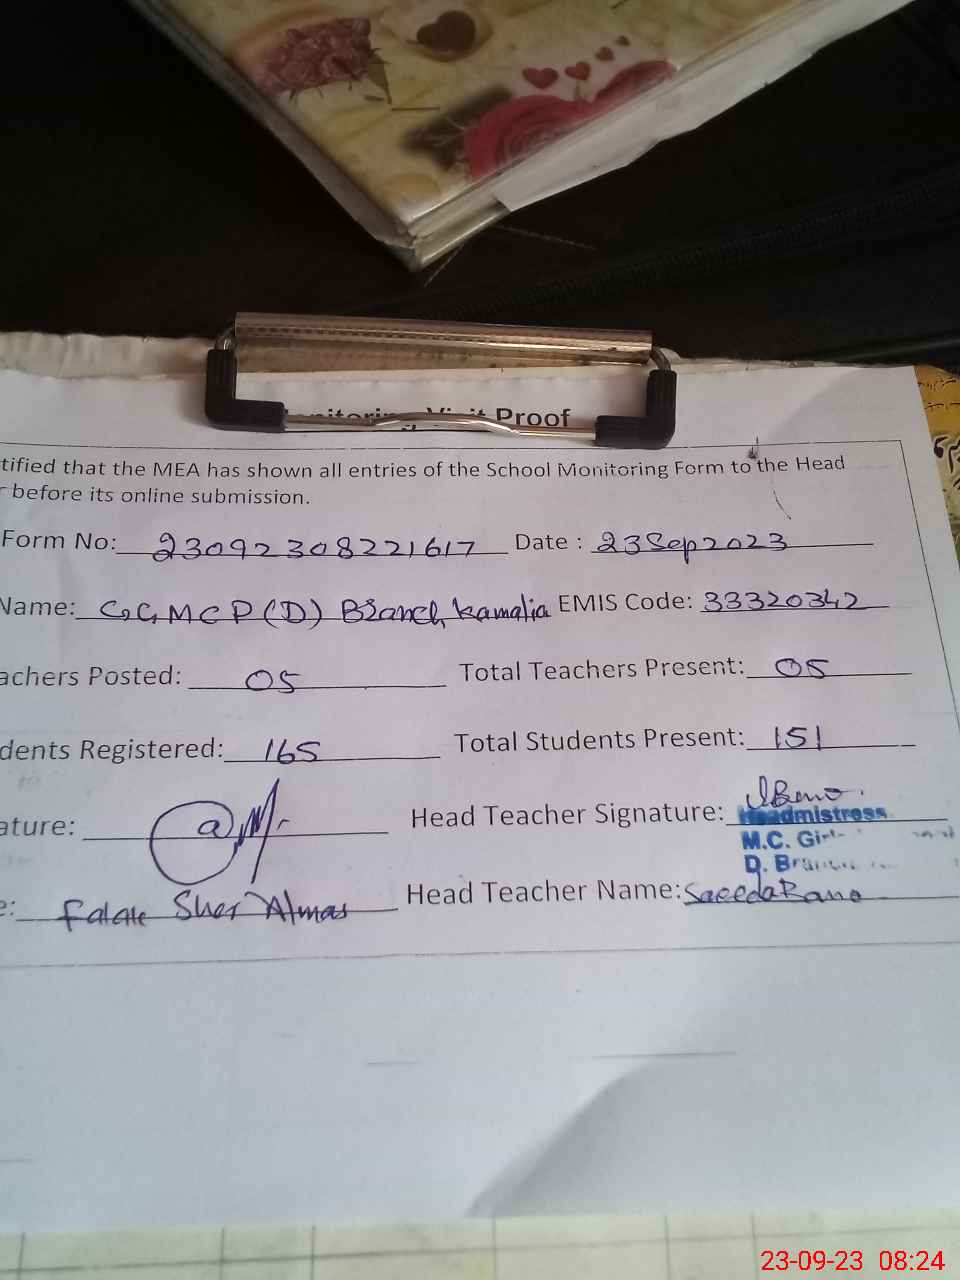 Monitoring Visit Proof
tified that the MEA has shown all entries of the School Monitoring Form to the Head
r before its online submission.
Form No: 23092308221617 Date : 23 Sep 2023
Name: GGMCP (D) Branch Kamalia EMIS Code: 33320342
achers Posted: 05 Total Teachers Present: 05
dents Registered: 165 Total Students Present: 151
ature: Head Teacher Signature: SBano.
Headmistress
M.C. Girl
D. Branch
e: Falak Sher Almas Head Teacher Name: Saeeda Bano
23-09-23 08:24